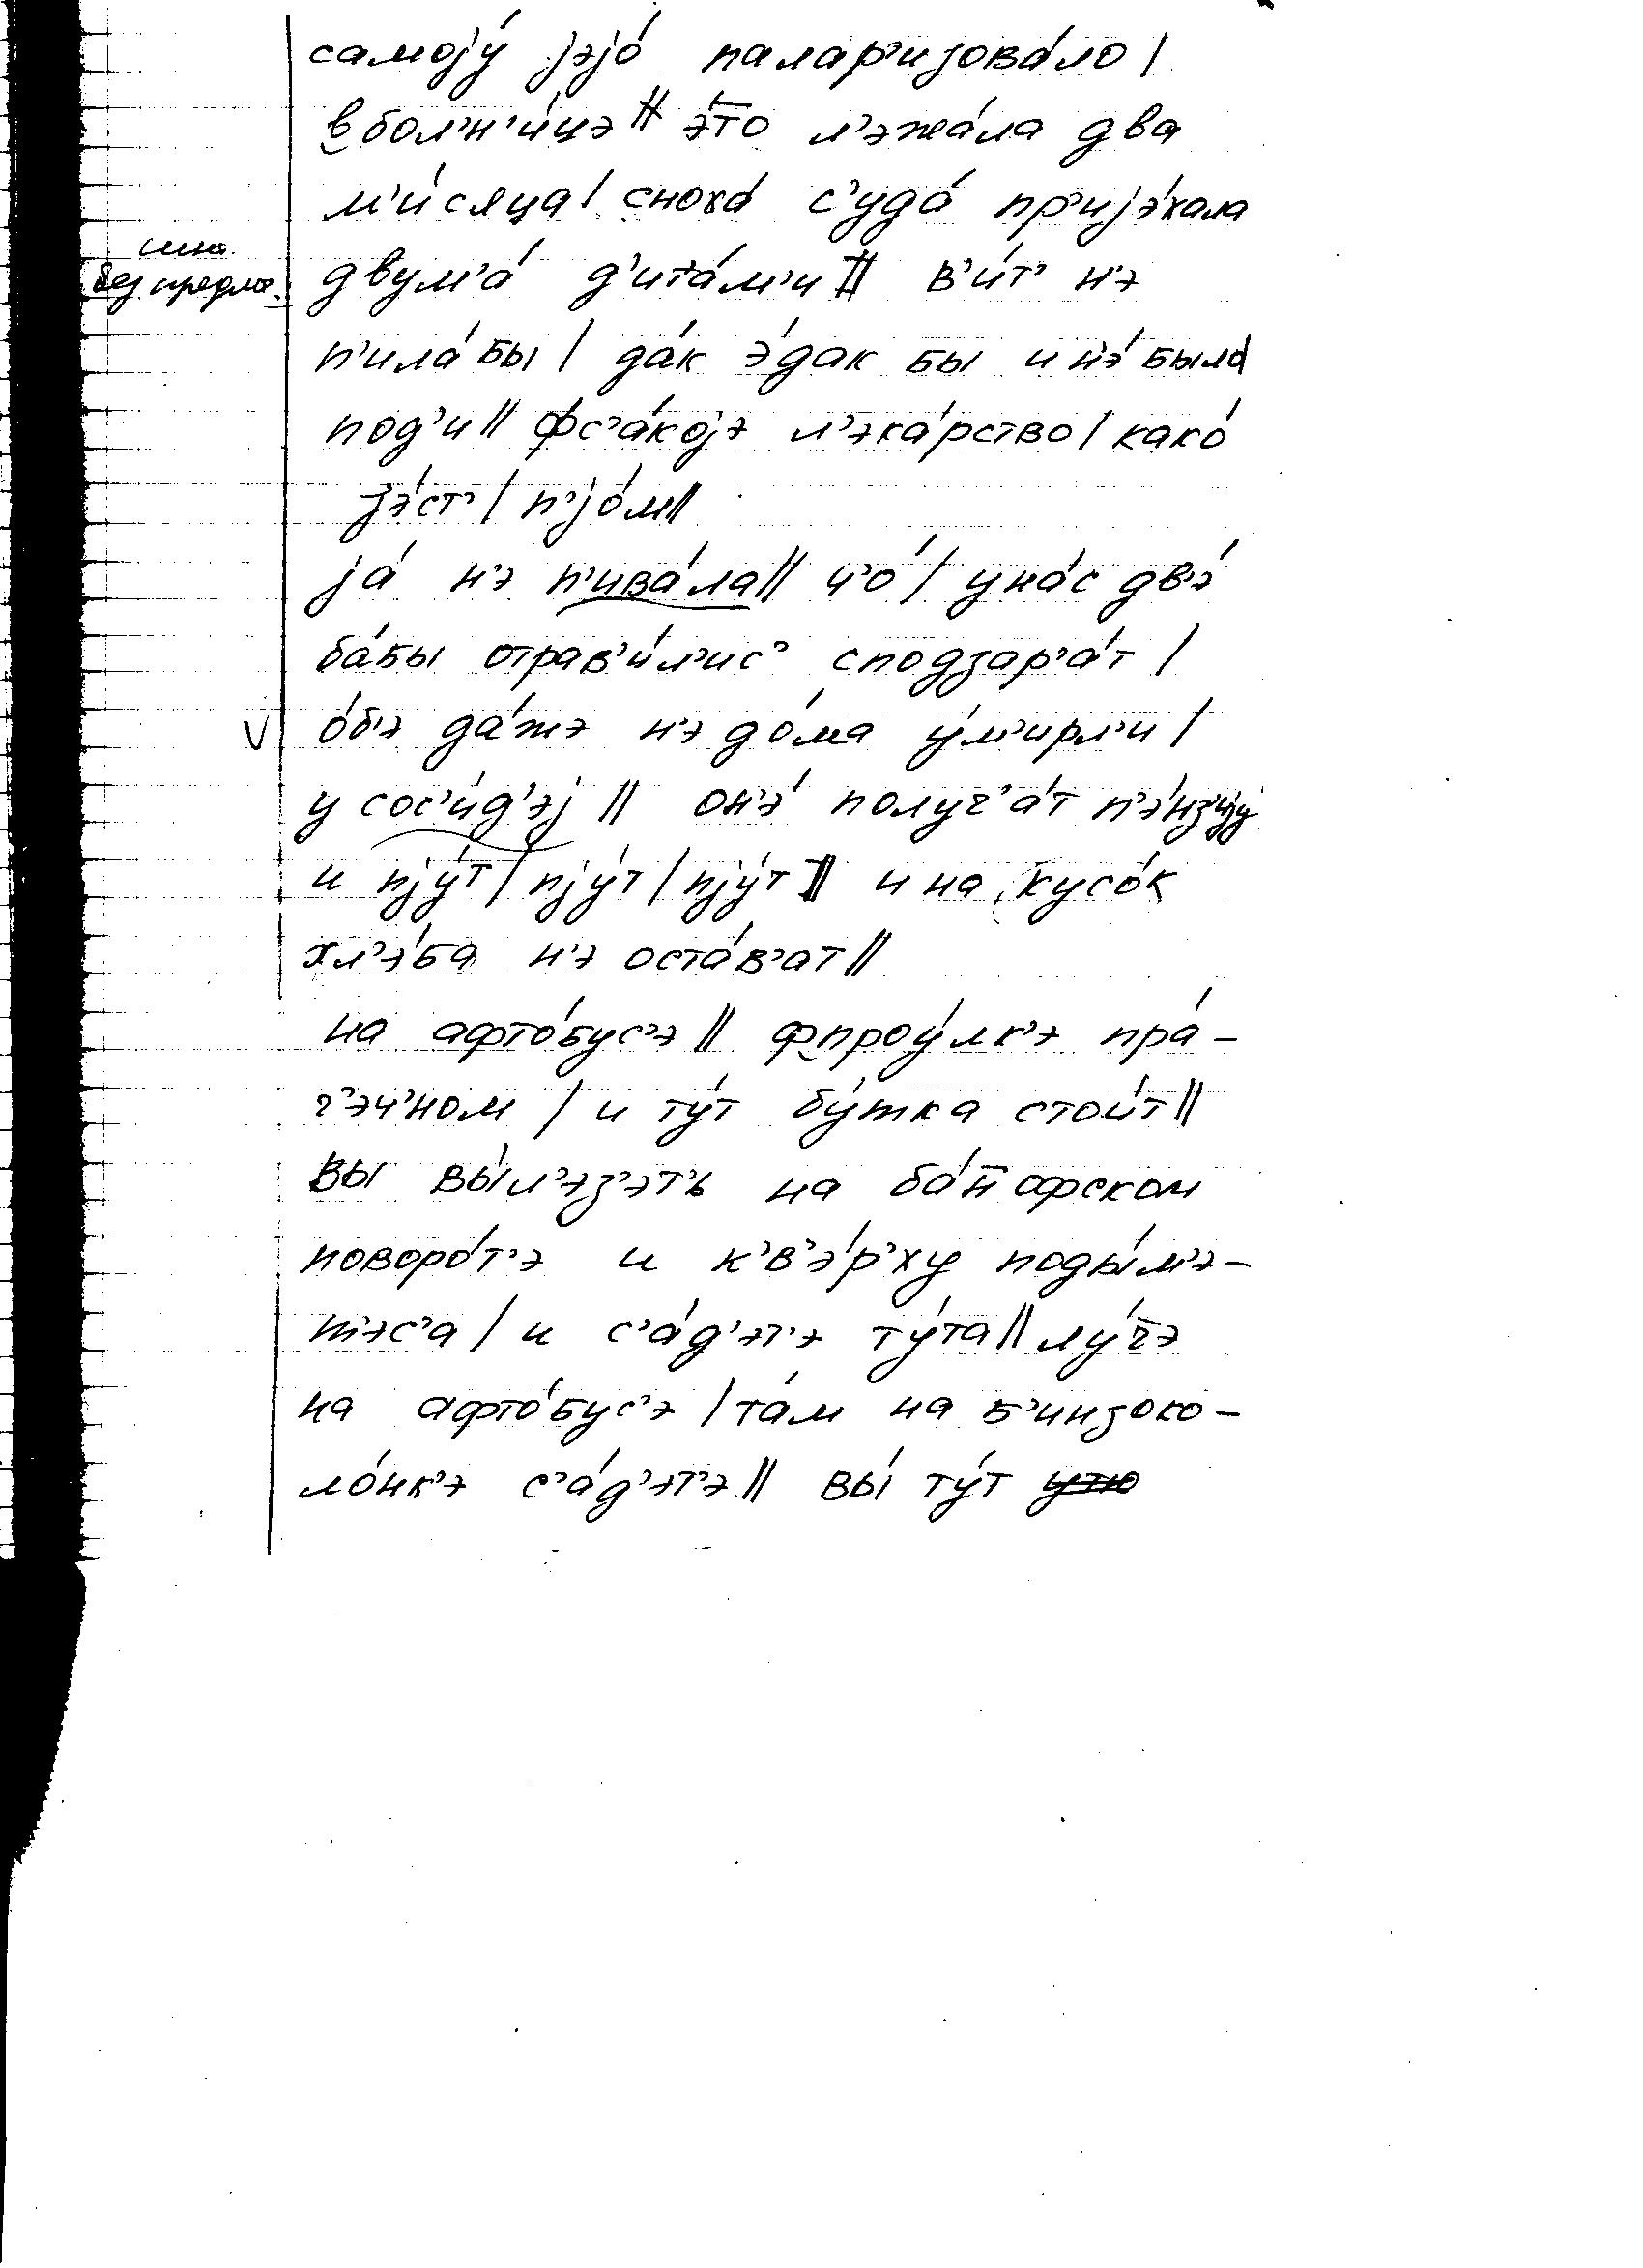 самоjу́ jэjо́ палар'изова́ло |
в бол'н'и́цэ || э́то л'эжа́ла два
м'и́сяца | сноха́ с'уда́ пр'иjэ́хала
без предлог.
двум'а́ д'ита́м'и || в'и́т' н'э
п'ила́ бы | да́к э́дак бы и н'э́ была
под'и || фс'а́коjэ л'эка́рство | како́
jэ́ст' | п'jо́м ||
jа́ н'э п'ива́ла || ч'о́ | у на́с дв'э́
ба́бы отрав'и́л'ис' сподзар'а́т |
V о́б'э да́жэ н'э до́ма у́м'ирл'и |
у сос'и́д'эj || он'э́ получ'а́т п'э́нз'иjу
и пjу́т | пjу́т | пjу́т || и на кусо́к
хл'э́ба н'э оста́в'ат ||
на афто́бус'э || фпроу́лк'э пра́-
ч'эч'ном | и ту́т бу́тка стои́т ||
вы вы́л'эз'эт'ь на ба́нофском
поворо́т'э и к'в'э́р'ху поды́м'э-
т'эс'а | и с'а́д'эт'э ту́та || лу́чэ
на афто́бус'э | та́м на б'инзоко-
ло́нк'э с'а́д'эт'э || вы́ ту́т